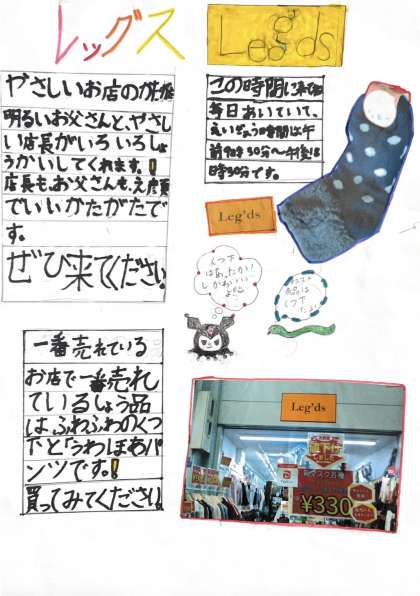 レッグス
Leg'ds
やさしいお店の家族
明るいお父さんと、やさし
い店長がいろいろしょ
うかいしてくれます。!
店長も、お父さんも、え顔
でいいかたがたで
す。
ぜひ来てください
この時間に来てね
毎日あいていて、
えいぎょう時間は午
前9時30分〜午後18
時30分です。
Leg'ds
くつ下
はあったか!
しかもかわいい
くつ下
だよ!
一番売れている
お店で一番売れ
ているしょう品
は、ふわふわのくつ
下と「うわほあパ
ンツです。!
買ってみてください。
Leg'ds
値下げ
¥330